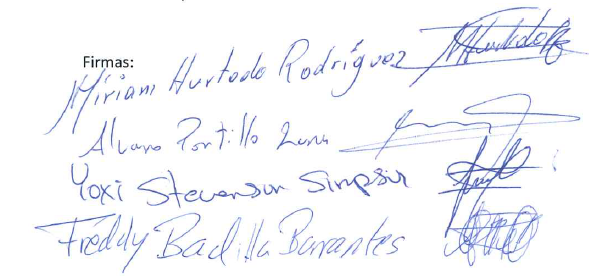 Firmas:
Miriam Hurtado Rodríguez MHurtadoR
Alvaro Portillo Luna
Yoxi Stevenson Simpson
Freddy Badilla Barrantes